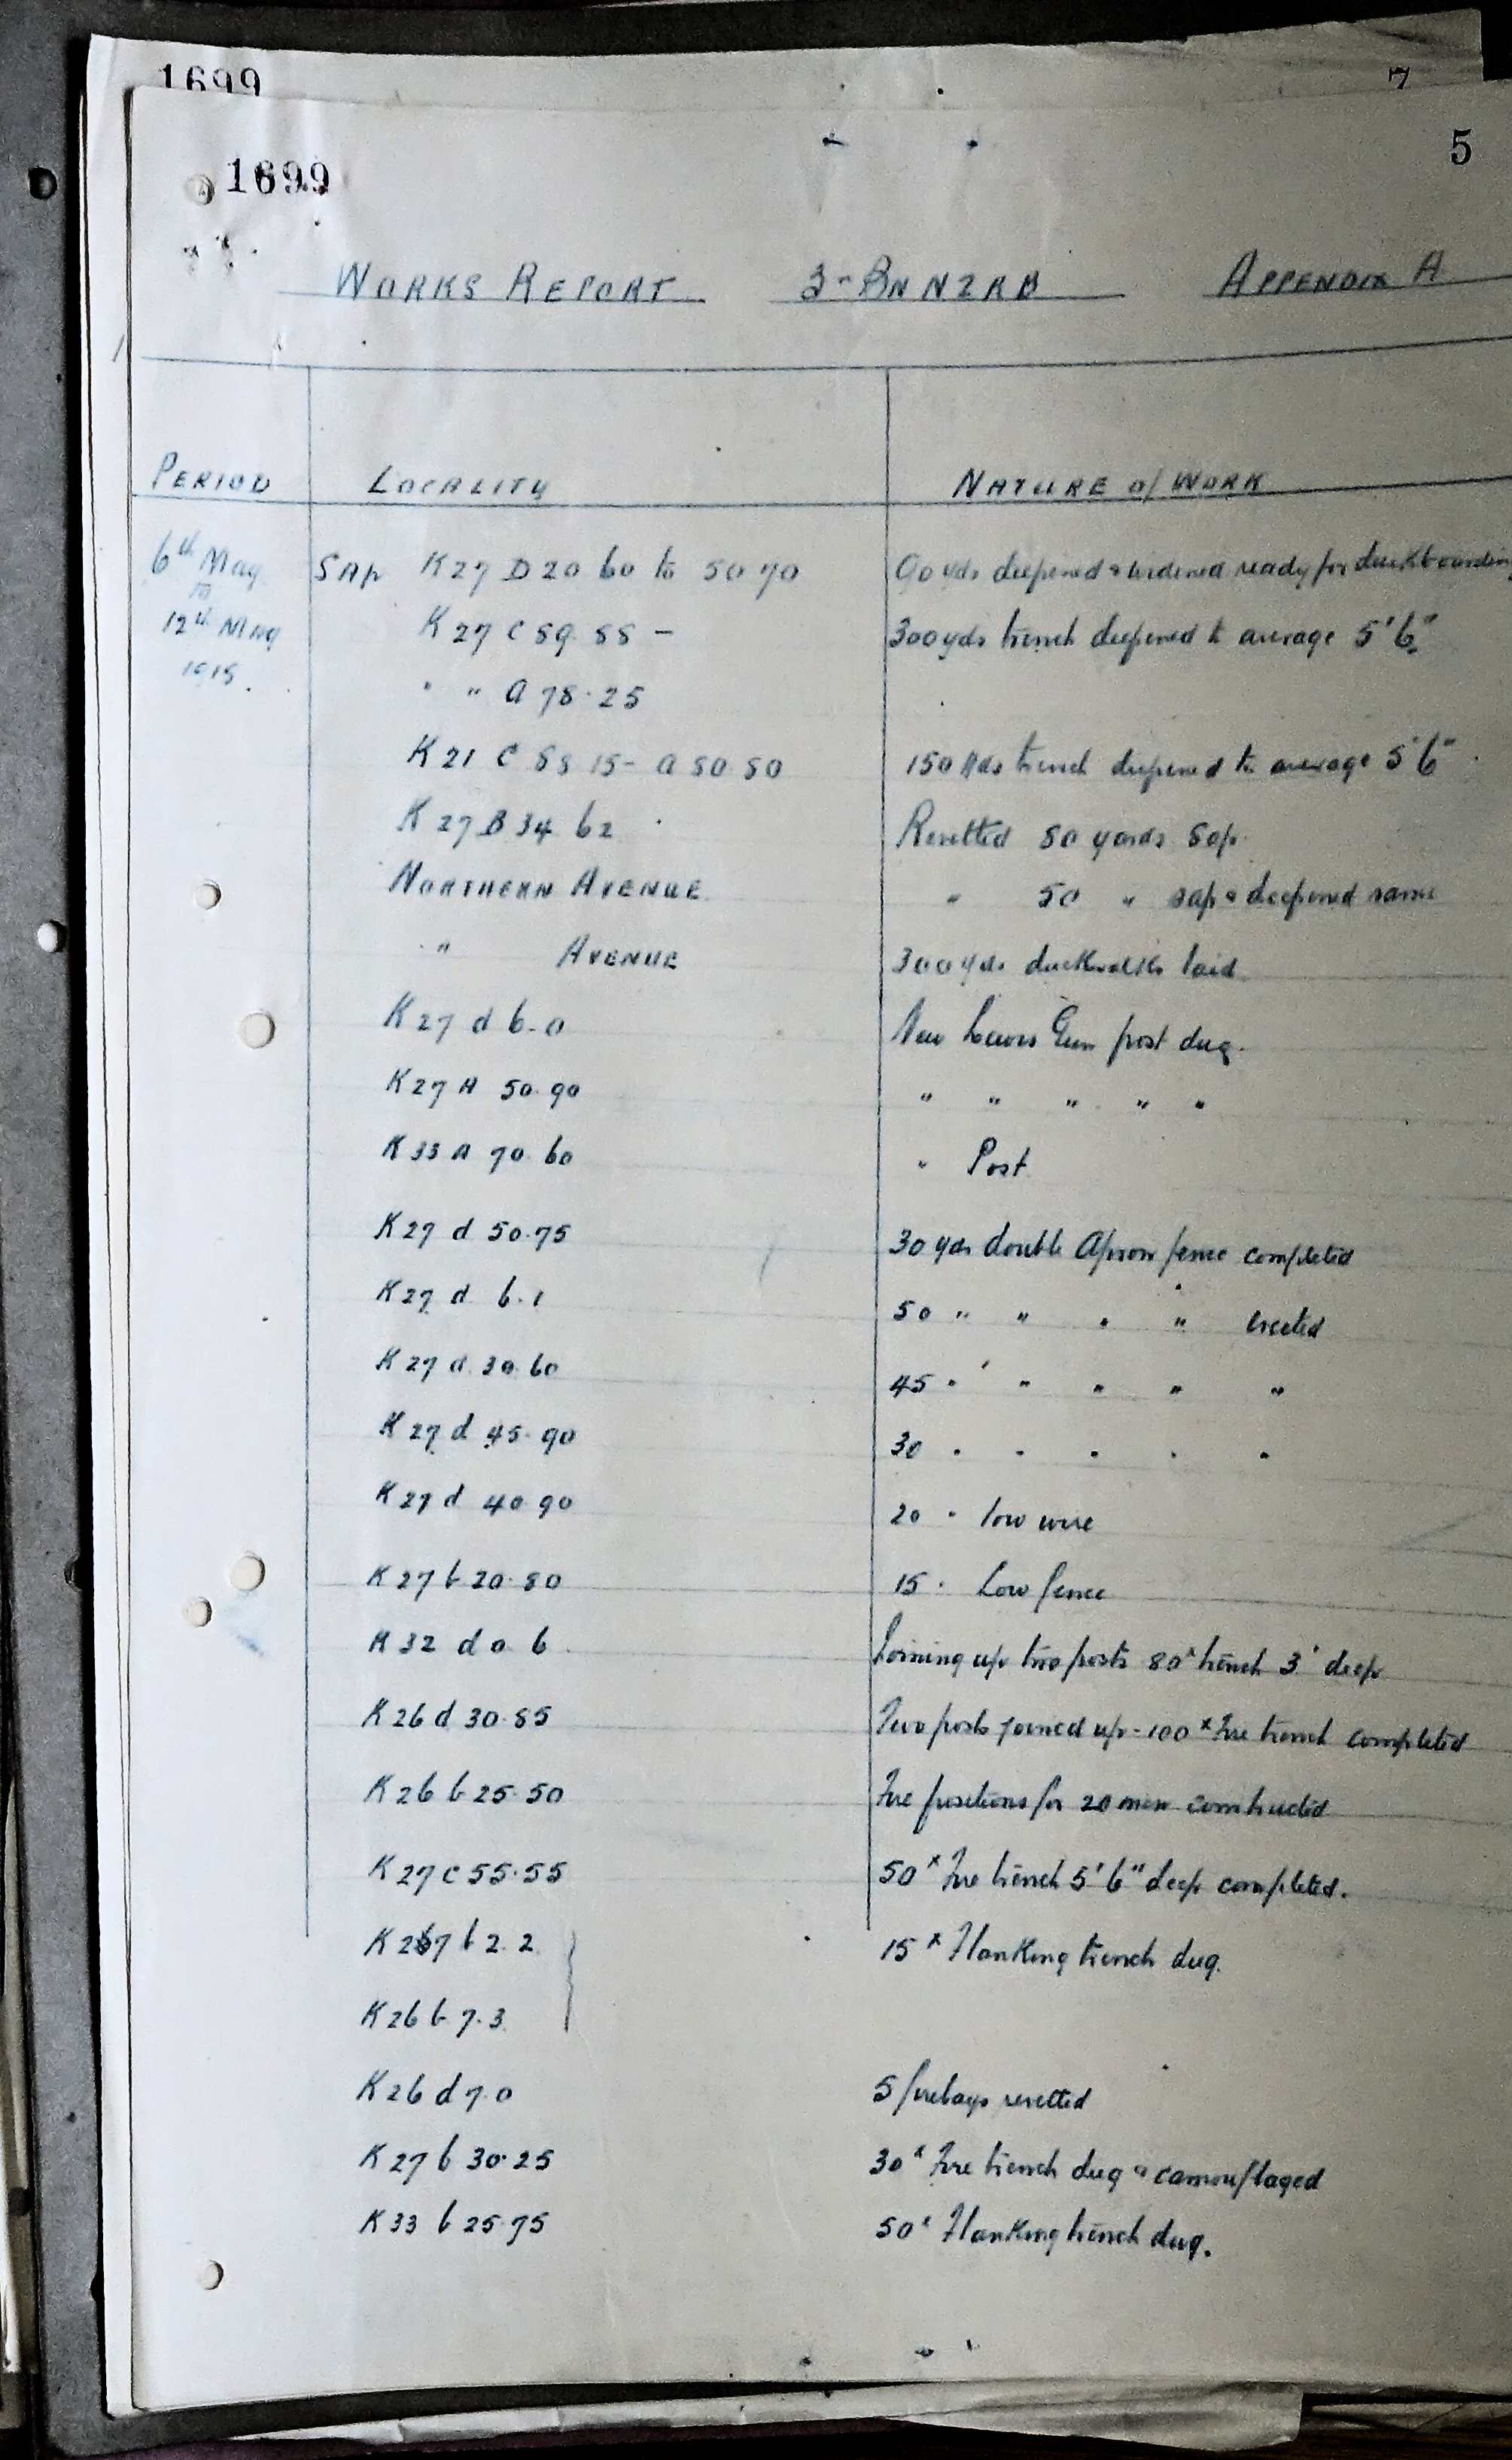 1699 7
1699 5
WORKS REPORT 3- BN NZRB APPENDIX A
PERIOD LOCALITY NATURE of WORK
6th May to 12th May SAP K27 D 20 60 to 50 70 90 yds deepened & widened ready for duckboarding
K27 C 59 55 - 300 yds trench deepened to average 5'6"
" " a 78.25
K21 C 55 15 - a 50 50 150 yds trench deepened to average 5'6"
K27 B 34 62 Revetted 50 yards Sap
NORTHERN AVENUE " 50 " sap & deepened same
" AVENUE 300 yds duckwalks laid
K27 d 6-0 New Lewis Gun post dug.
K27 A 50.90 " " " " "
K33 A 70.60 " Post
K27 d 50.75 30 yds double Apron fence completed
K27 d 6.1 50 " " " " erected
K27 d 30.60 45 " " " " "
K27 d 45.90 30 " " " " "
K27 d 40 90 20 " low wire
K27 b 20.80 15 " Low fence
K32 d 0 6 Joining up two posts 80x trench 3' deep
K26 d 30.85 Two posts joined up - 100x Fire trench completed
K26 b 25.50 Fire positions for 20 men constructed
K27 c 55.55 50x Fire trench 5'6" deep completed.
K27 b 2.2 15x Flanking trench dug.
K26 b 7.3
K26 d 7.0 5 firebays revetted
K27 b 30.25 30x Fire trench dug & camouflaged
K33 b 25.75 50x Flanking trench dug.